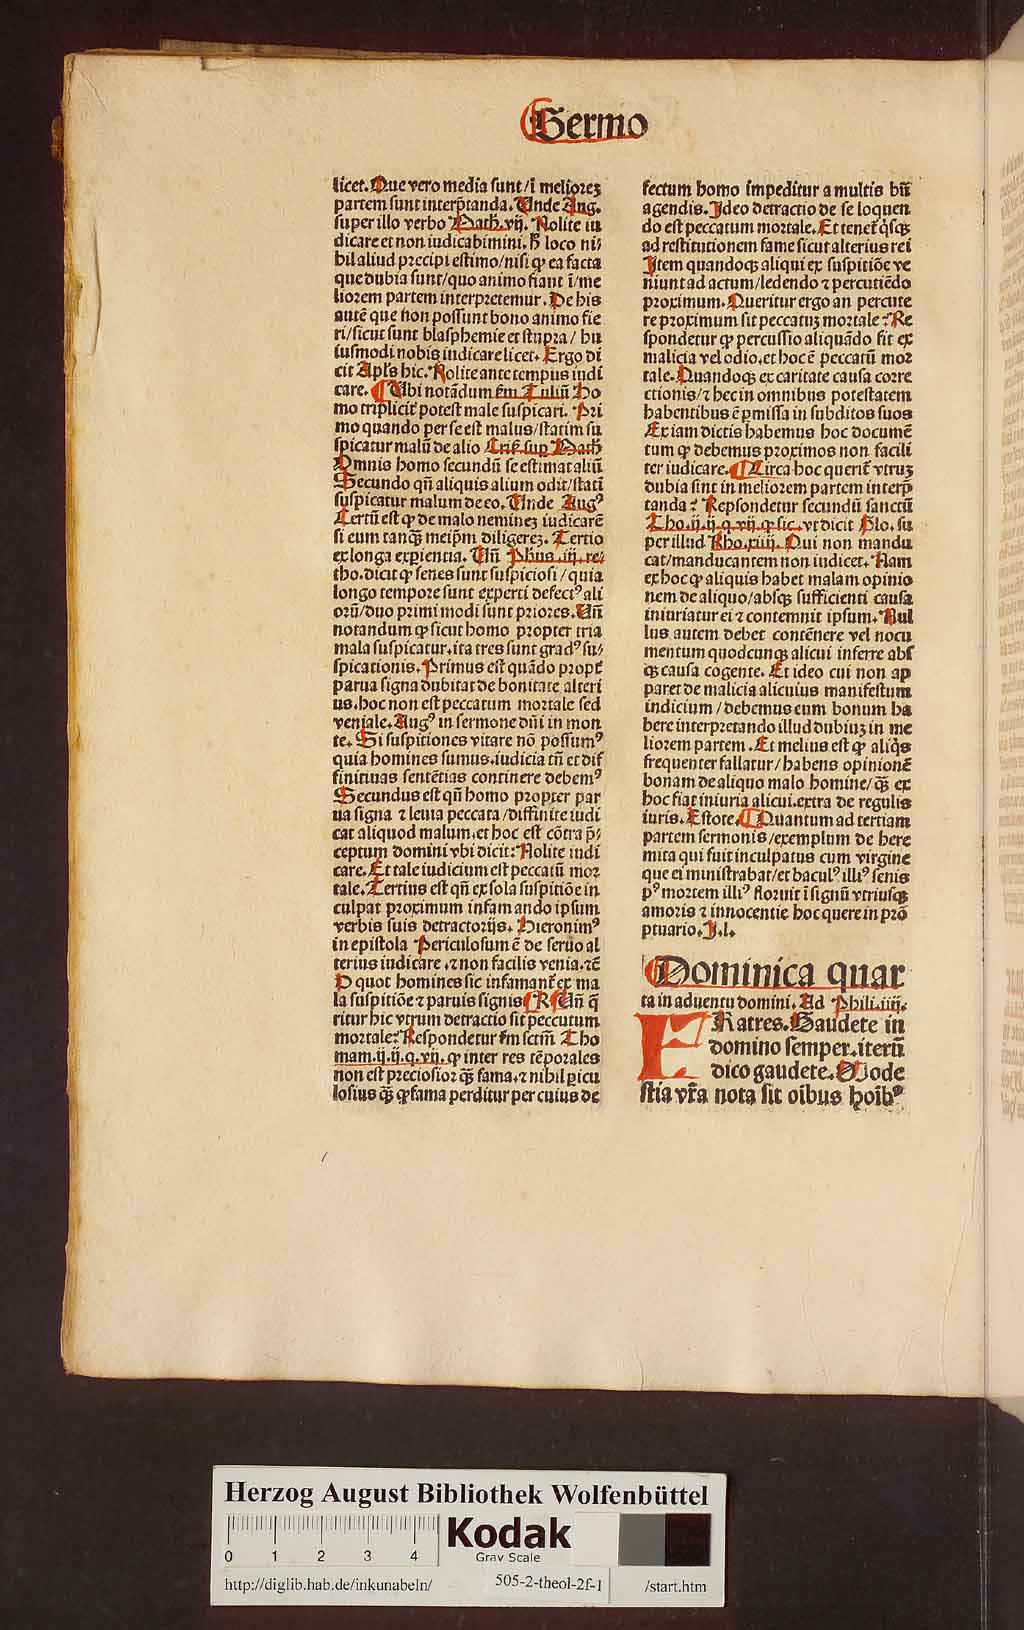 Sermo
licet. Que vero media sunt/ī meliorez
partem sunt interp̄tanda. Unde Aug.
super illo verbo Math. vij. Nolite iu
dicare et non iudicabimini. H̄ loco ni⸗
hil aliud precipi estimo/nisi ꝙ ea facta
que dubia sunt/quo animo fiant ī/me
liorem partem interpretemur. De his
autē que non possunt bono animo fie
ri/sicut sunt blasphemie et stupra/ hu
iusmodi nobis iudicare licet. Ergo di
cit Apl's hic. Nolite ante tempus iudi
care. Ubi notādum scd'm Tulliū Ho
mo triplicit' potest male suspicari. Pri
mo quando per se est malus/statim su
spicatur malū de alio Cris. sup Math
Omnis homo secundū se estimat aliū
Secundo qn̄ aliquis alium odit/statī
suspicatur malum de eo. Unde Augꝰ
Certū est ꝙ de malo neminez iudicarē
si eum tanqȝ meip̄m diligerez. Tertio
ex longa experientia. Un̄ Ph'us .iij. re⸗
tho. dicit ꝙ senes sunt suspiciosi/quia
longo tempore sunt experti defectꝰ ali
orū/duo primi modi sunt priores. Un̄
notandum ꝙ sicut homo propter tria
mala suspicatur. ita tres sunt gradꝰ su⸗
spicationis. Primus est quādo propt'
parua signa dubitat de bonitate alteri
us. hoc non est peccatum mortale sed
veniale. Augꝰ in sermone dn̄i in mon
te. Si suspitiones vitare nō possumꝰ
quia homines sumus. iudicia tn̄ et dif
finitiuas sentētias continere debemꝰ
Secundus est qn̄ homo propter par
ua signa ⁊ leuia peccata/diffinite iudi
cat aliquod malum. et hoc est cōtra p̄⸗
ceptum domini vbi dicit: Nolite iudi
care. Et tale iudicium est peccatū mor
tale. Tertius est qn̄ ex sola suspitiōe in
culpat proximum infamando ipsum
verbis suis detractorijs. Hieronimꝰ
in epistola Periculosum ē de seruo al
terius iudicare .⁊ non facilis venia. ⁊c̄
O quot homines sic infamant' ex ma
la suspitiōe ⁊ paruis signis R Un̄ q̄
ritur hic vtrum detractio sit peccatum
mortale? Respondetur s'm sctm̄ Tho
mam. ij. ij. q. vij. ꝙ inter res tēporales
non est preciosior qȝ fama. ⁊ nihil ꝑicu
losius qȝ ꝙ fama perditur per cuius de
fectum homo impeditur a multis bn̄
agendis. Ideo detractio de se loquen
do est peccatum mortale. Et tenet' q̇sqȝ
ad restitutionem fame sicut alterius rei
Item quandoqȝ aliqui ex suspitiōe ve
niunt ad actum/ledendo ⁊ percutiēdo
proximum. Queritur ergo an percute
re proximum sit peccatuȝ mortale? Re
spondetur ꝙ percussio aliquādo fit ex
malicia vel odio. et hoc ē peccatū mor
tale. Quandoqȝ ex caritate causa corre
ctionis/⁊ hec in omnibus potestatem
habentibus ē ꝑmissa in subditos suos
Ex iam dictis habemus hoc documē
tum ꝙ debemus proximos non facili
ter iudicare. Circa hoc querit' vtruȝ
dubia sint in meliorem partem interp̄
tanda? Repsondetur secundū sanctū
Tho. ij. ij. q. vij. ꝙ sic. vt dicit Glo. su
per illud Rho. xiiij. Qui non mandu
cat/manducantem non iudicet. Nam
ex hoc ꝙ aliquis habet malam opinio
nem de aliquo/absqȝ sufficienti causa
iniuriatur ei ⁊ contemnit ipsum. Nul
lus autem debet contēnere vel nocu
mentum quodcunqȝ alicui inferre abs
qȝ causa cogente. Et ideo cui non ap
paret de malicia alicuius manifestum
indicium/debemus eum bonum ha
bere interpretando illud dubiuȝ in me
liorem partem. Et melius est ꝙ aliq̇s
frequenter fallatur/habens opinionē
bonam de aliquo malo homine/qȝ ex
hoc fiat iniuria alicui. extra de regulis
iuris. Estote. Quantum ad tertiam
partem sermonis/exemplum de here
mita qui fuit inculpatus cum virgine
que ei ministrabat/et baculꝰ illiꝰ senis
pꝰ mortem illiꝰ floruit ī signū vtriusqȝ
amoris ⁊ innocentie hoc quere in prō
ptuario. J. l.
Dominica quar
ta in aduentu domini. Ad Phili. iiij.
FRatres. Gaudete in
domino semper. iterū
dico gaudete. Mode
stia vr̄a nota sit oībus hoībꝰ
Herzog August Bibliothek Wolfenbüttel
0 1 2 3 4
Kodak
Gray Scale
http://diglib.hab.de/inkunabeln/ 505-2-theol-2f-1 /start.htm